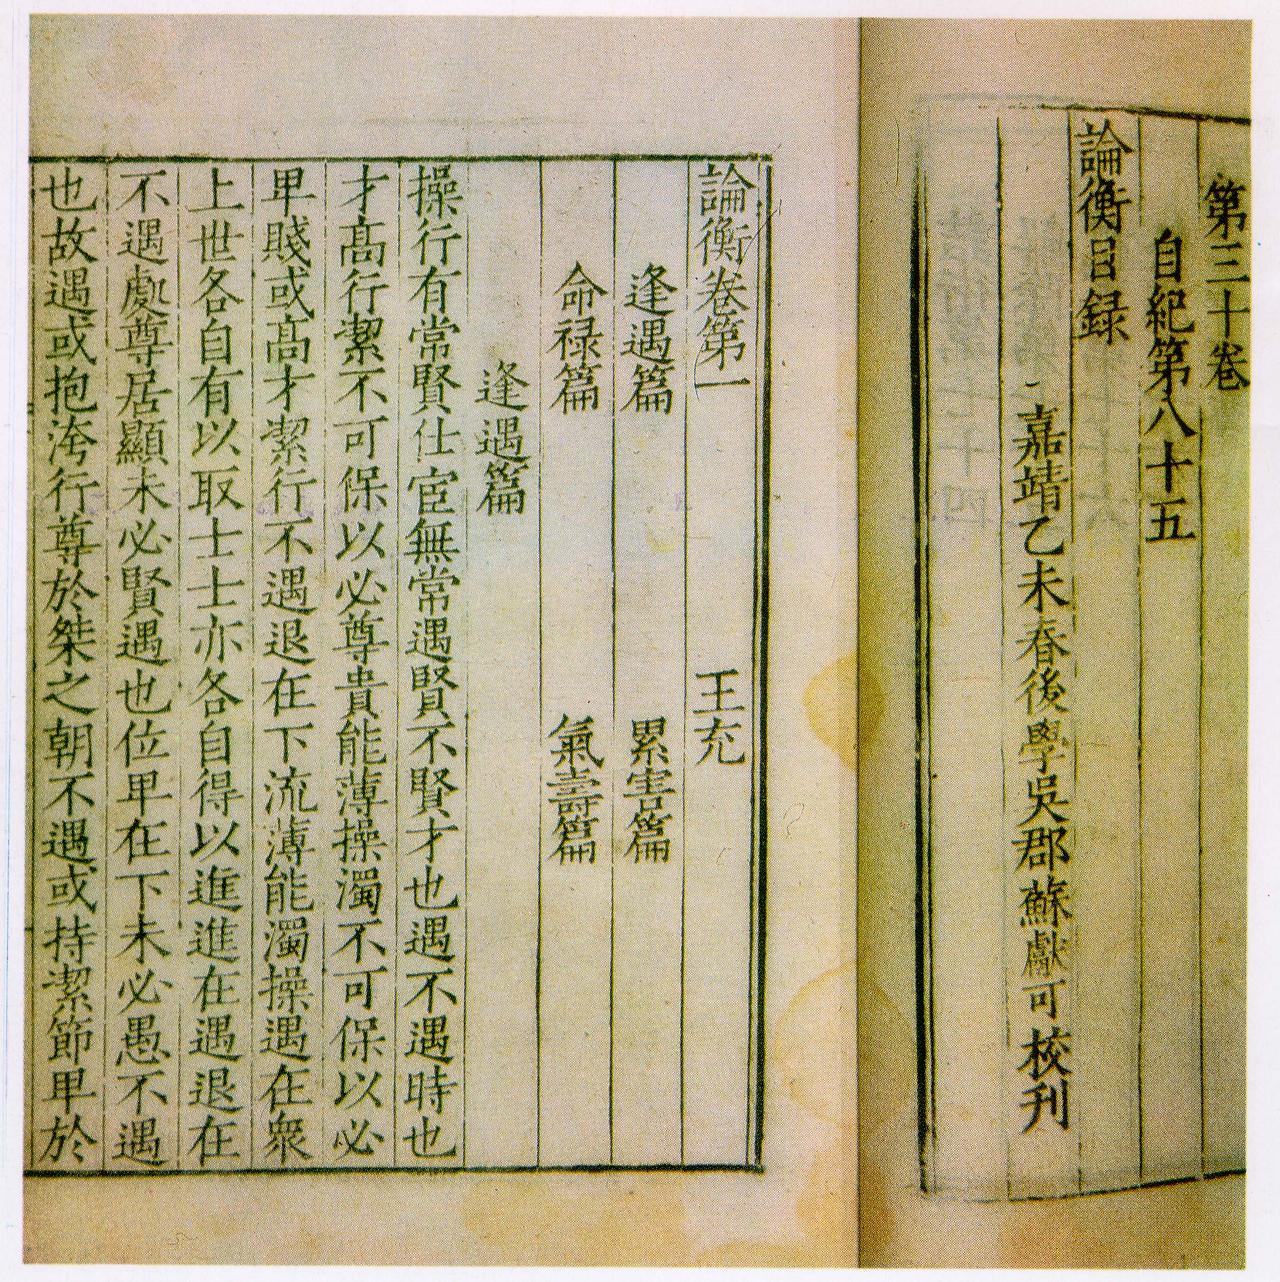 第三十卷
自紀第八十五
論衡目録
嘉靖乙未春後學吳郡蘇獻可校刋
論衡卷第一 王充
逢遇篇 累害篇
命禄篇 氣壽篇
逢遇篇
操行有常賢仕宦無常遇賢不賢才也遇不遇時也
才髙行潔不可保以必尊貴能薄操濁不可保以必
卑賤或髙才潔行不遇退在下流薄能濁操遇在衆
上世各自有以取士士亦各自得以進進在遇退在
不遇處尊居顯未必賢遇也位卑在下未必愚不遇
也故遇或抱洿行尊於桀之朝不遇或持潔節卑於